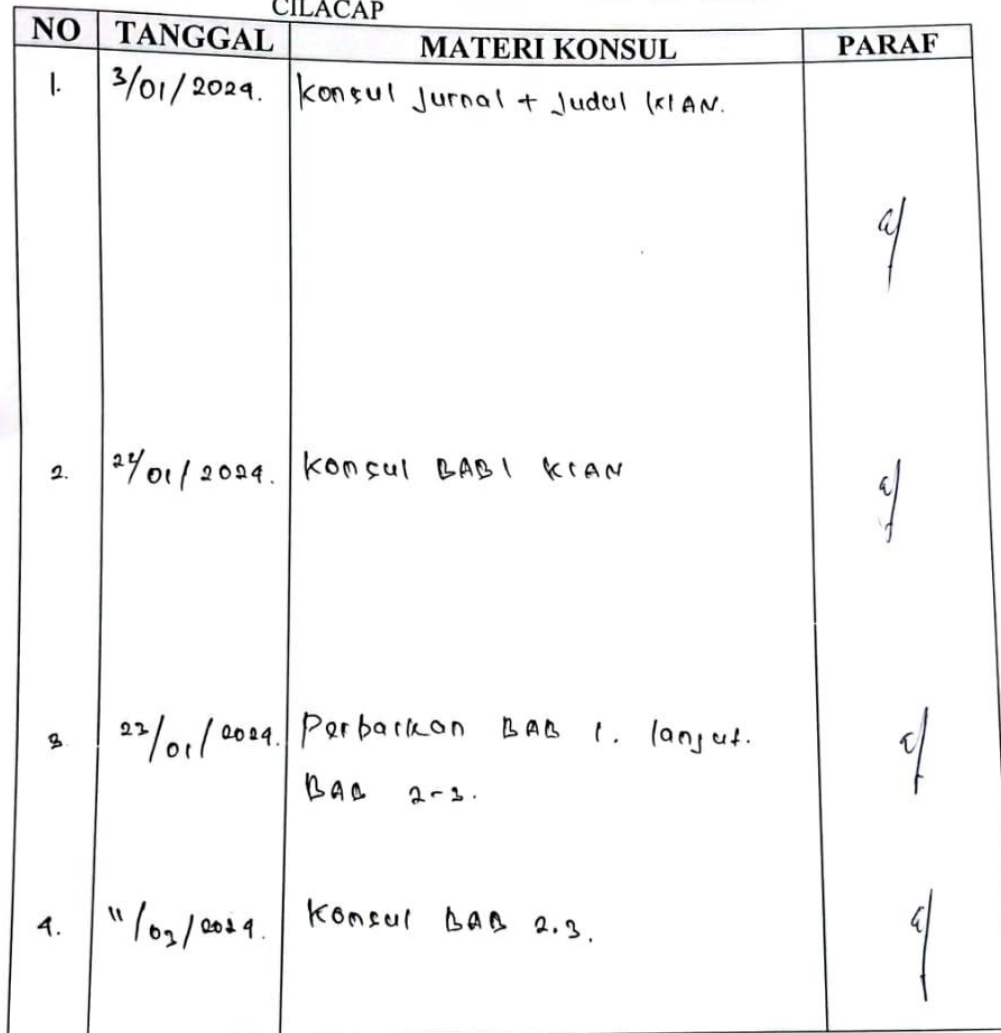 CILACAP
NO TANGGAL MATERI KONSUL PARAF
1. 3/01/2024. Konsul Jurnal + Judul KIAN.
2. /01/2024. Konsul BAB 1 KIAN
3. 23/01/2024. Perbaikan BAB 1. lanjut.
BAB 2-3.
4. 11/03/2024. Konsul BAB 2.3.